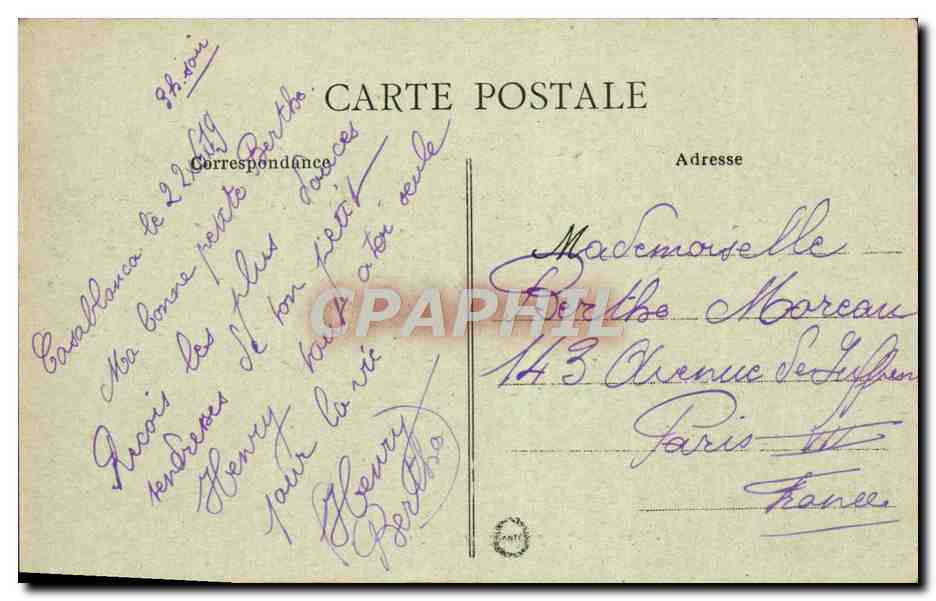 CARTE POSTALE
Correspondance
Adresse
8h. soir
Casablanca le 22/6/19
Ma bonne petite Berthe
Reçois les plus douces
tendresses de ton petit
Henry tout à toi seule
pour la vie
Henry
Bertha
Mademoiselle
Berthe Moreau
143 Avenue de Suffren
Paris VII
France
CPAPHIL